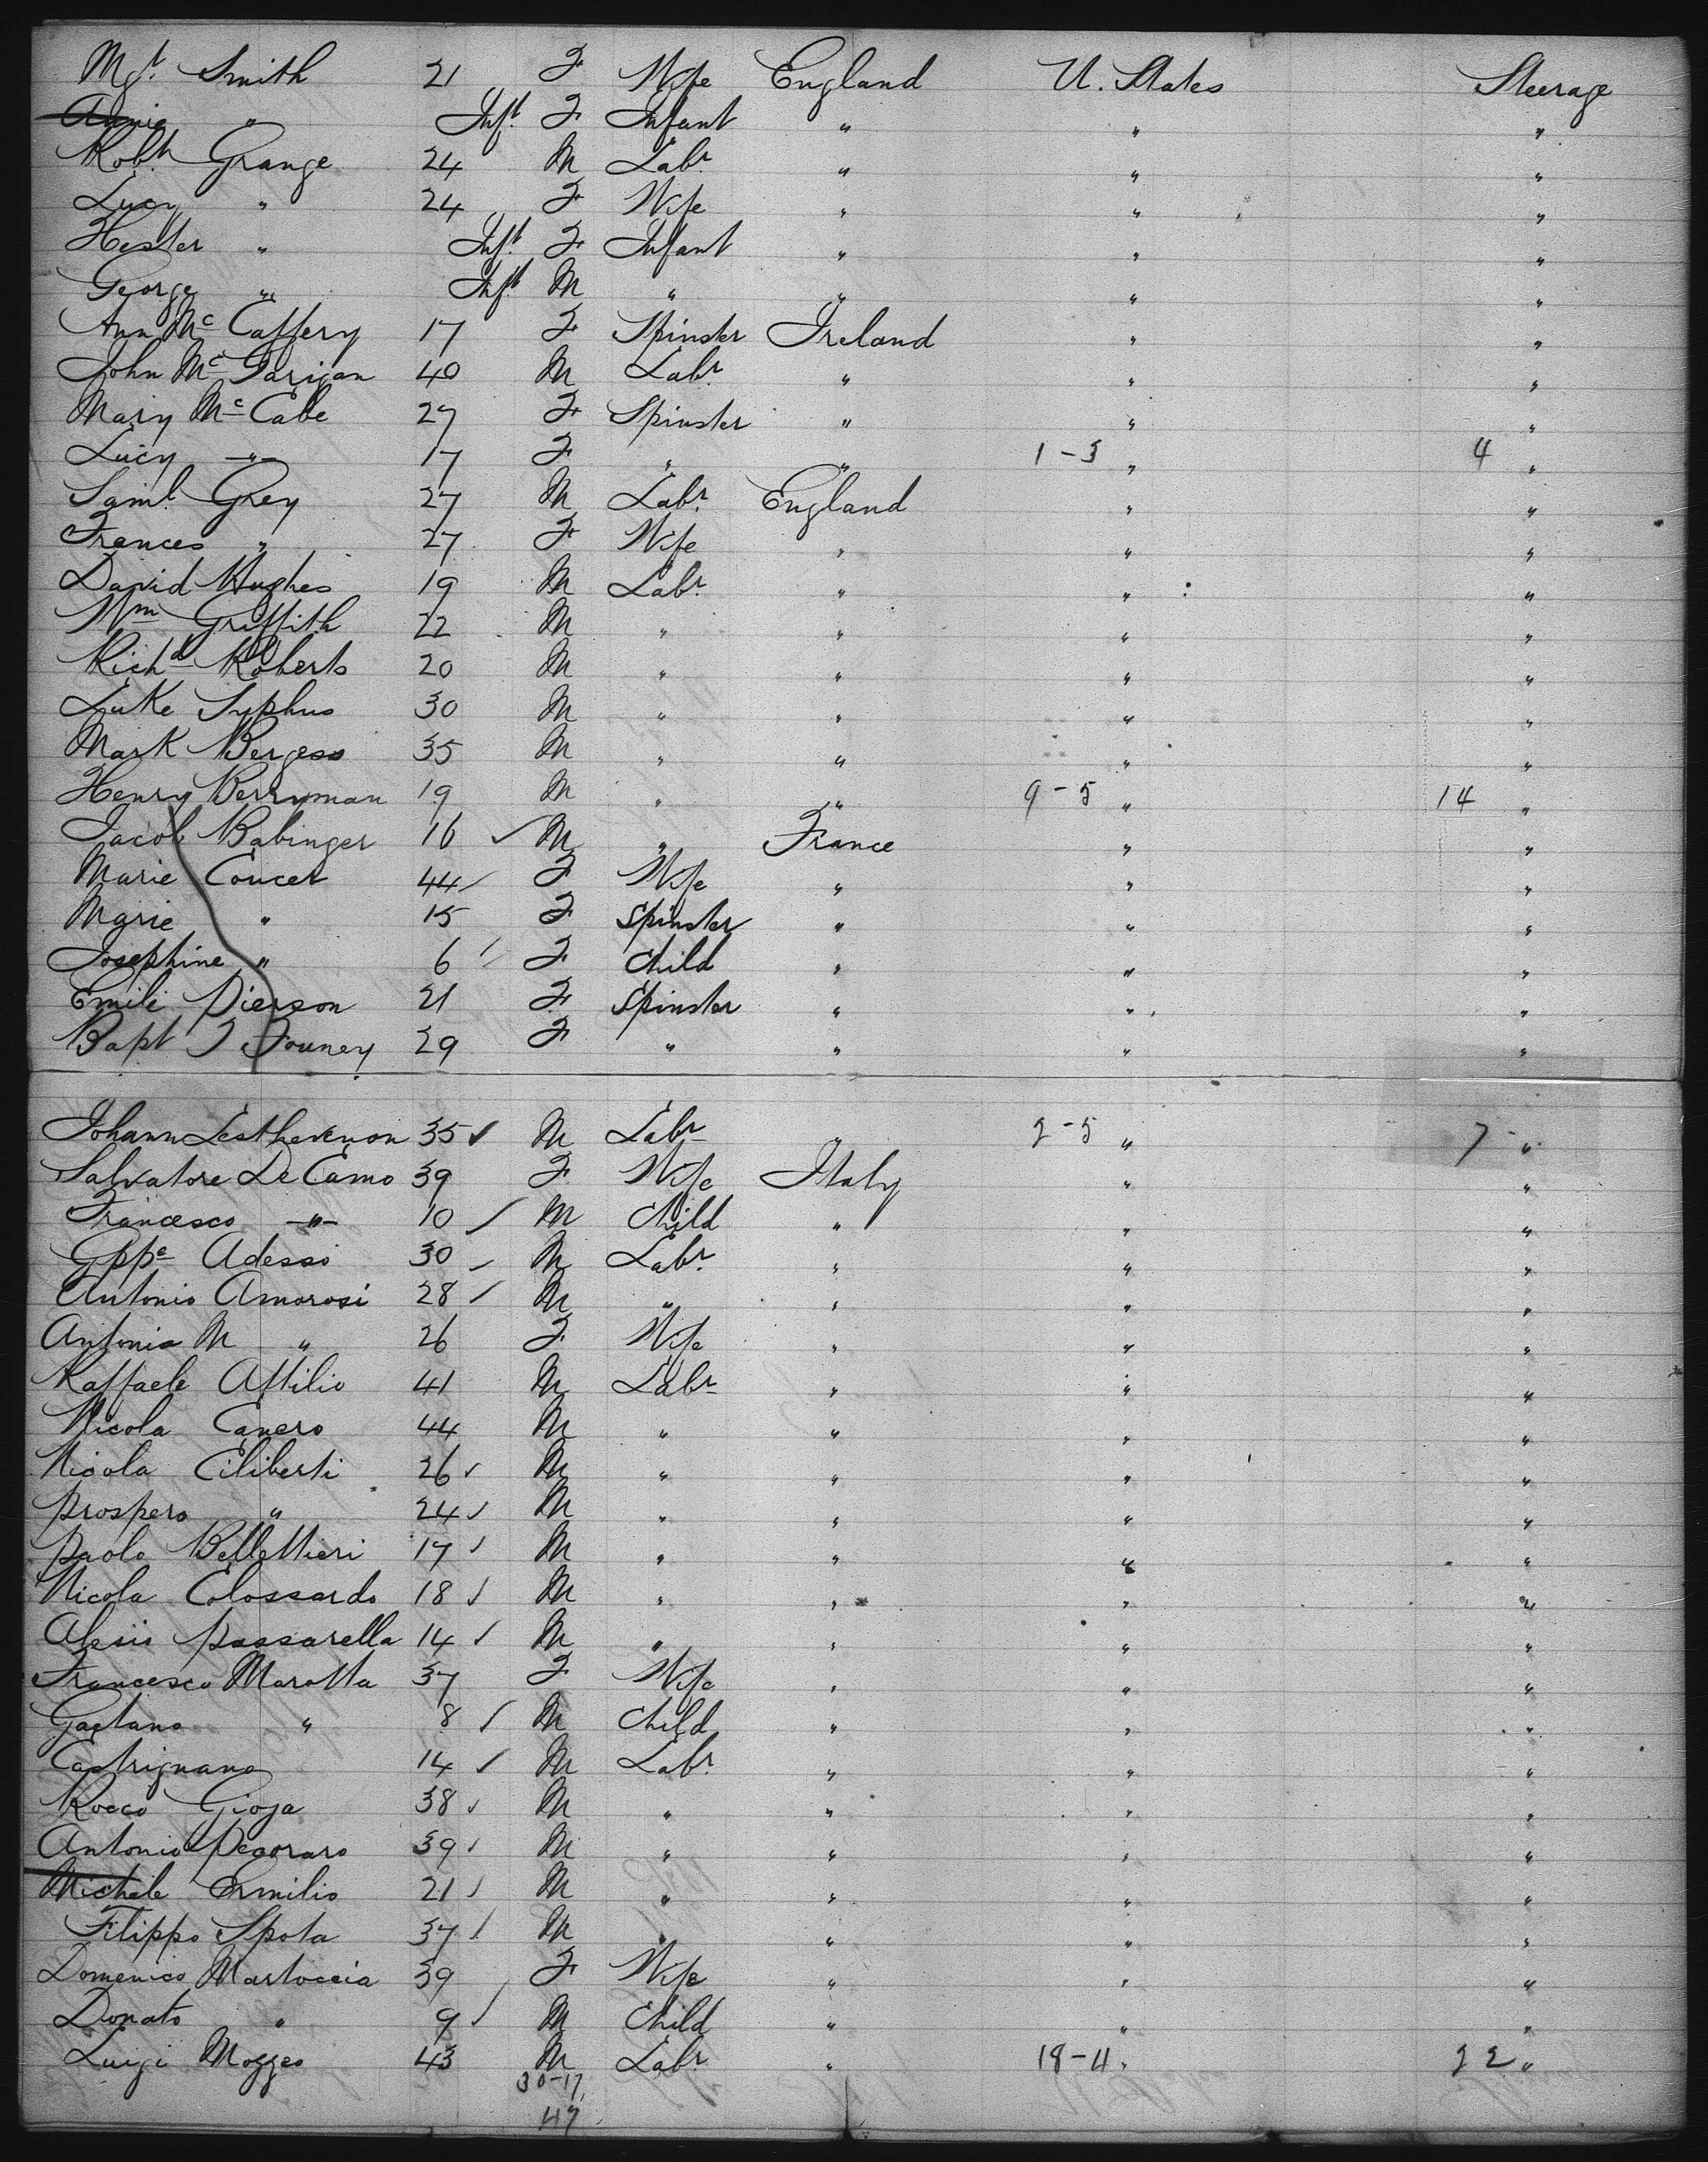 Mgt. Smith 21 F Wife England U. States Steerage
Annie " Inft. F Infant " " "
Robt. Grange 24 M Labr. " " "
Lucy " 24 F Wife " " "
Hester " Inft. F Infant " " "
George " Inft. M " " " "
Ann Mc Caffery 17 F Spinster Ireland " "
John Mc Garigan 40 M Labr. " " "
Mary Mc Cabe 27 F Spinster " " "
Lucy -"- 17 F " " 1-3 " 4 "
Saml. Grey 27 M Labr. England " "
Frances " 27 F Wife " " "
David Hughes 19 M Labr. " " "
Wm Griffith 22 M " " " "
Richd Roberts 20 M " " " "
Luke Syphus 30 M " " " "
Mark Bergess 35 M " " " "
Henry Berryman 19 M " " 9-5 " 14 "
Jacob Babinger 16 ✓ M " France " "
Marie Coucet 44 ✓ F Wife " " "
Marie " 15 F Spinster " " "
Josephine " 6 ✓ F Child " " "
Emile Pierson 21 F Spinster " " "
Bapt J Jouney 29 F " " " "
Johann Lesthevenon 35 ✓ M Labr " 2-5 " 7 "
Salvatore De Camo 39 F Wife Italy " "
Francesco -"- 10 ✓ M Child " " "
Gppe Adessi 30 ✓ M Labr. " " "
Antonio Amorosi 28 ✓ M " " " "
Antonia M " 26 F Wife " " "
Raffaele Attilio 41 M Labr " " "
Nicola Canero 44 M " " " "
Nicola Ciliberti 26 ✓ M " " " "
Prospero " 24 ✓ M " " " "
Paolo Bellettieri 17 ✓ M " " " "
Nicola Colossardo 18 ✓ M " " " "
Alesio Passarella 14 ✓ M " " " "
Francesco Marotta 37 F Wife " " "
Gaetano " 8 ✓ M Child " " "
Castrignano 14 ✓ M Labr. " " "
Rocco Gioja 38 ✓ M " " " "
Antonio Pegoraro 39 ✓ M " " " "
Michele Ermilio 21 ✓ M " " " "
Filippo Spota 37 ✓ M " " " "
Domenico Martoccia 39 F Wife " " "
Donato " 9 ✓ M Child " " "
Luigi Mozzeo 43 M Labr " 18-4 " 22 "
30-17
47